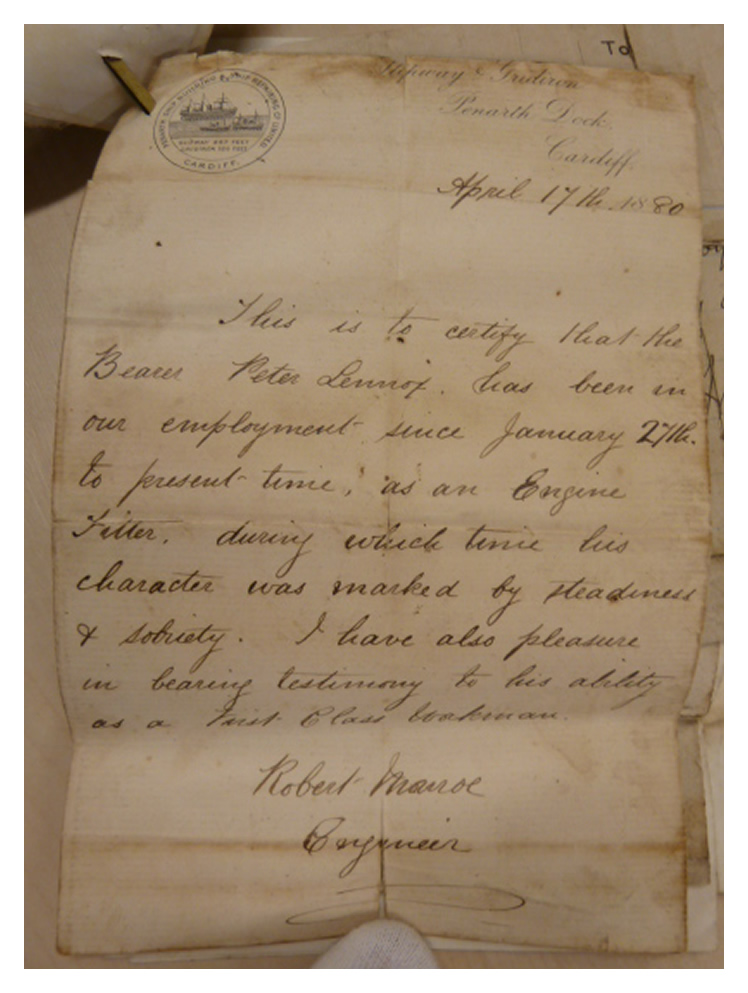 To
Slipway & Gridiron
Penarth Dock,
Cardiff.
PENARTH SHIP BUILDING & SHIP REPAIRING Co LIMITED
CARDIFF.
April 17th 1880
This is to certify that the
Bearer Peter Lennox. has been in
our employment since January 27th.
to present time, as an Engine
Fitter. during which time his
character was marked by steadiness
& sobriety. I have also pleasure
in bearing testimony to his ability
as a First Class Workman.
Robert Munroe
Engineer